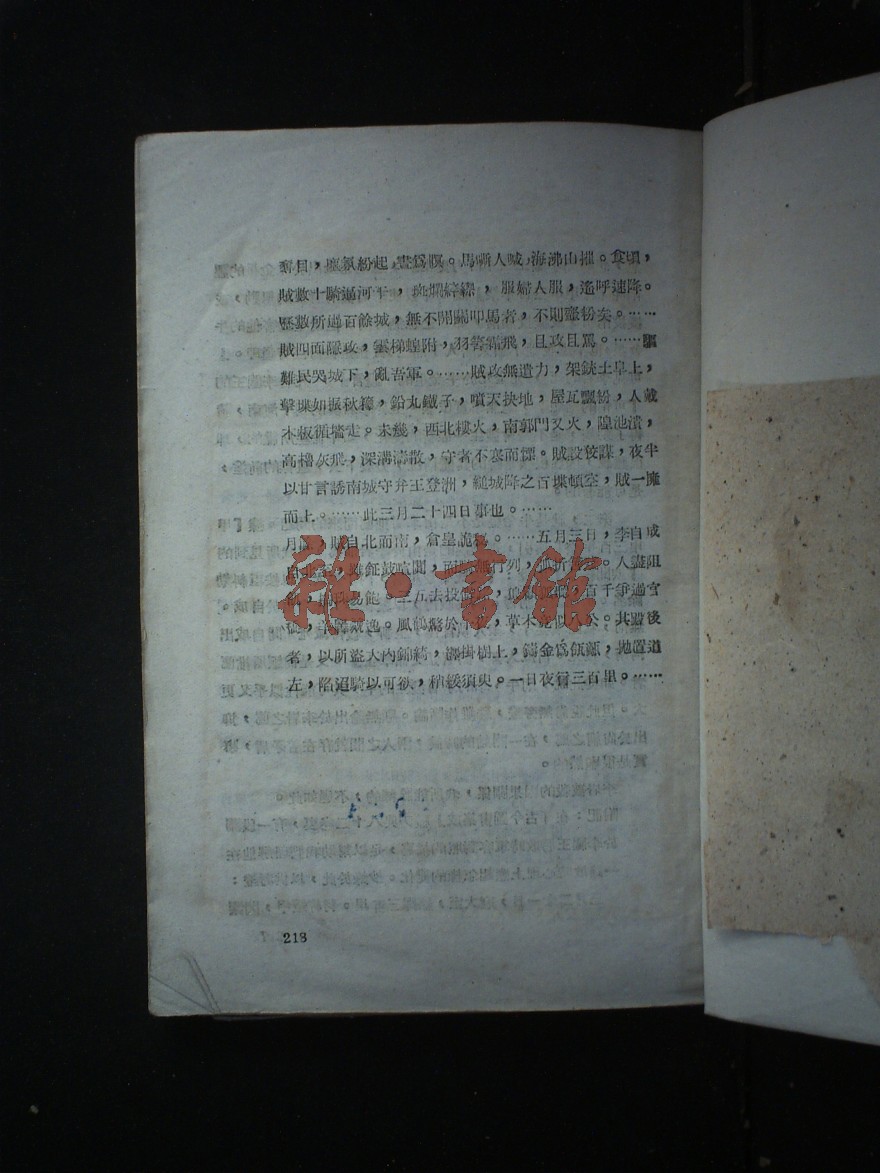 奪目，塵氛紛起，晝爲暝。馬嘶人喊，海沸山摧。食頃，
賊數十騎逼河干，斑斕綷縩，服婦人服，遙呼速降。
歷數所過百餘城，無不開關叩馬者，不則齏粉矣。……
賊四面隱攻，雲梯蝗附，羽箭霜飛，且攻且罵。……驅
難民哭城下，亂吾軍。……賊攻無遺力，架銃土阜上，
擊堞如振秋籜，鉛丸鐵子，噴天抉地，屋瓦飄紛，人戴
木板循墻走。未幾，西北樓火，南郭門又火，隍池潰，
高櫓灰飛，深溝濤散，守者不衰而懼。賊設狡謀，夜半
以甘言誘南城守弁王登洲，縋城降之百堞頓空，賊一擁
而上。……此三月二十四日事也。……
月 賊自北而南，倉皇 ……五月三日，李自成
鉦鼓 聞，而 行列， 人盡阻
飽。三五 百千爭過官
風鶴驚於 草木 似 公。其醫後
者，以所盜大內錦綺，挪掛樹上，鑄金爲 拋置道
左，陷追騎以可欲，稍緩須臾。一日夜奔三百里。……
218
雜·書館